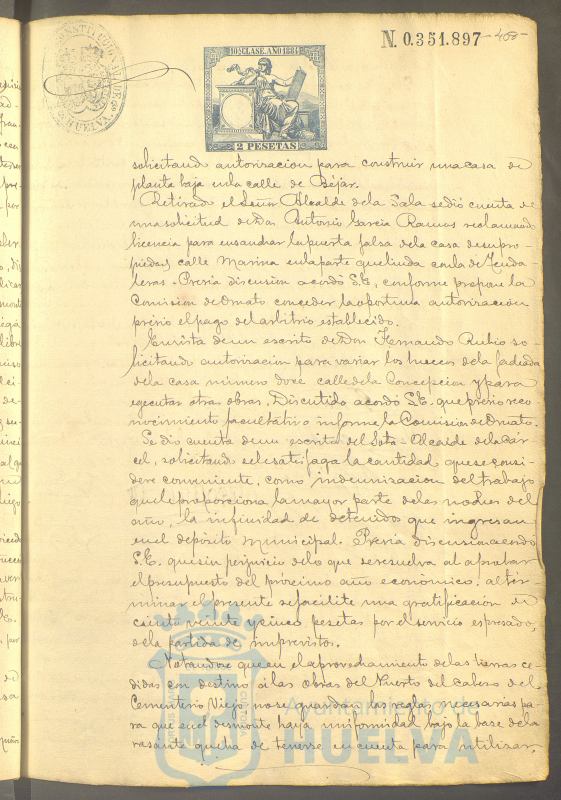 N. 0.351.897
10ª CLASE. AÑO 1884
2 PESETAS
HUELVA
solicitando autorizacion para construir una casa de
planta baja en la calle de Béjar.
Retirado el Señor Alcalde de la Sala se dió cuenta de
una solicitud de Don Antonio Garcia Ramos reclamando
licencia para ensanchar la puerta falsa de la casa de su pro-
piedad calle Marina en la parte que linda con la de Tenda-
leras. Previa discusion acordó S.E. conforme propone la
Comision de Ornato conceder la oportuna autorizacion
prévio el pago del arbitrio establecido.
En vista de un escrito de Don Fernando Rubio so-
licitando autorizacion para variar los huecos de la fachada
de la casa número doce calle de la Concepcion y para
egecutar otras obras. Discutido acordó S.E. que previo reco
nocimiento facultativo informe la Comision de Ornato.
Se dió cuenta de un escrito del Sota-Alcaide de la Car-
cel, solicitando se le satisfaga la cantidad que se consi-
dere conveniente, como indemnizacion del trabajo
que le proporciona la mayor parte de las noches del
año, la infinidad de detenidos que ingresan
en el depósito municipal. Previa discusion acordó
S.E. que sin perjuicio de lo que se resuelva al aprobar
el presupuesto del procsimo año económico, al tér-
minar el presente se facilite una gratificacion de
ciento veinte y cinco pesetas por el servicio espresado,
de la partida de imprevistos.
Notandose que en el aprovechamiento de las tierras ce-
didas con destino á las obras del Puerto del Cabezo del
Cementerio Viejo no se guardan las reglas necesarias pa-
ra que en el desmonte haya uniformidad bajo la base de la
rasante que ha de tenerse en cuenta para utilizar,
Ayuntamiento de
HUELVA